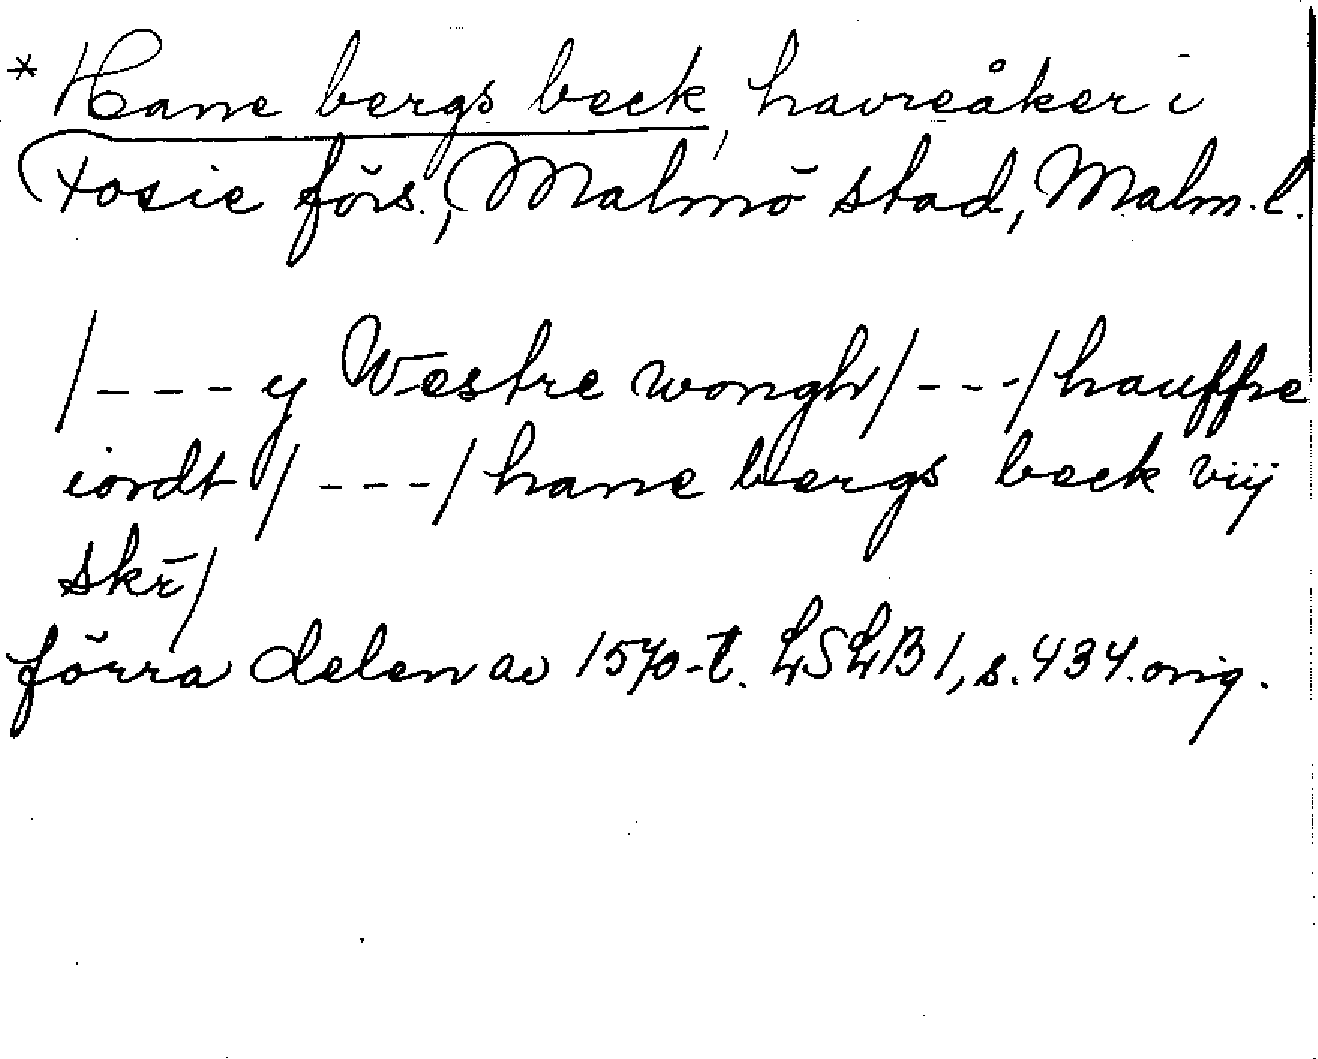 * Hane bergs beck, havreåker i
Fosie förs., Malmö stad, Malm. l.
/---y Westre wongh/---/hauffre
iordt/---/hane bergs beck viij
skr̄/
förra delen av 1570-t. LSLB 1, s. 434. orig.